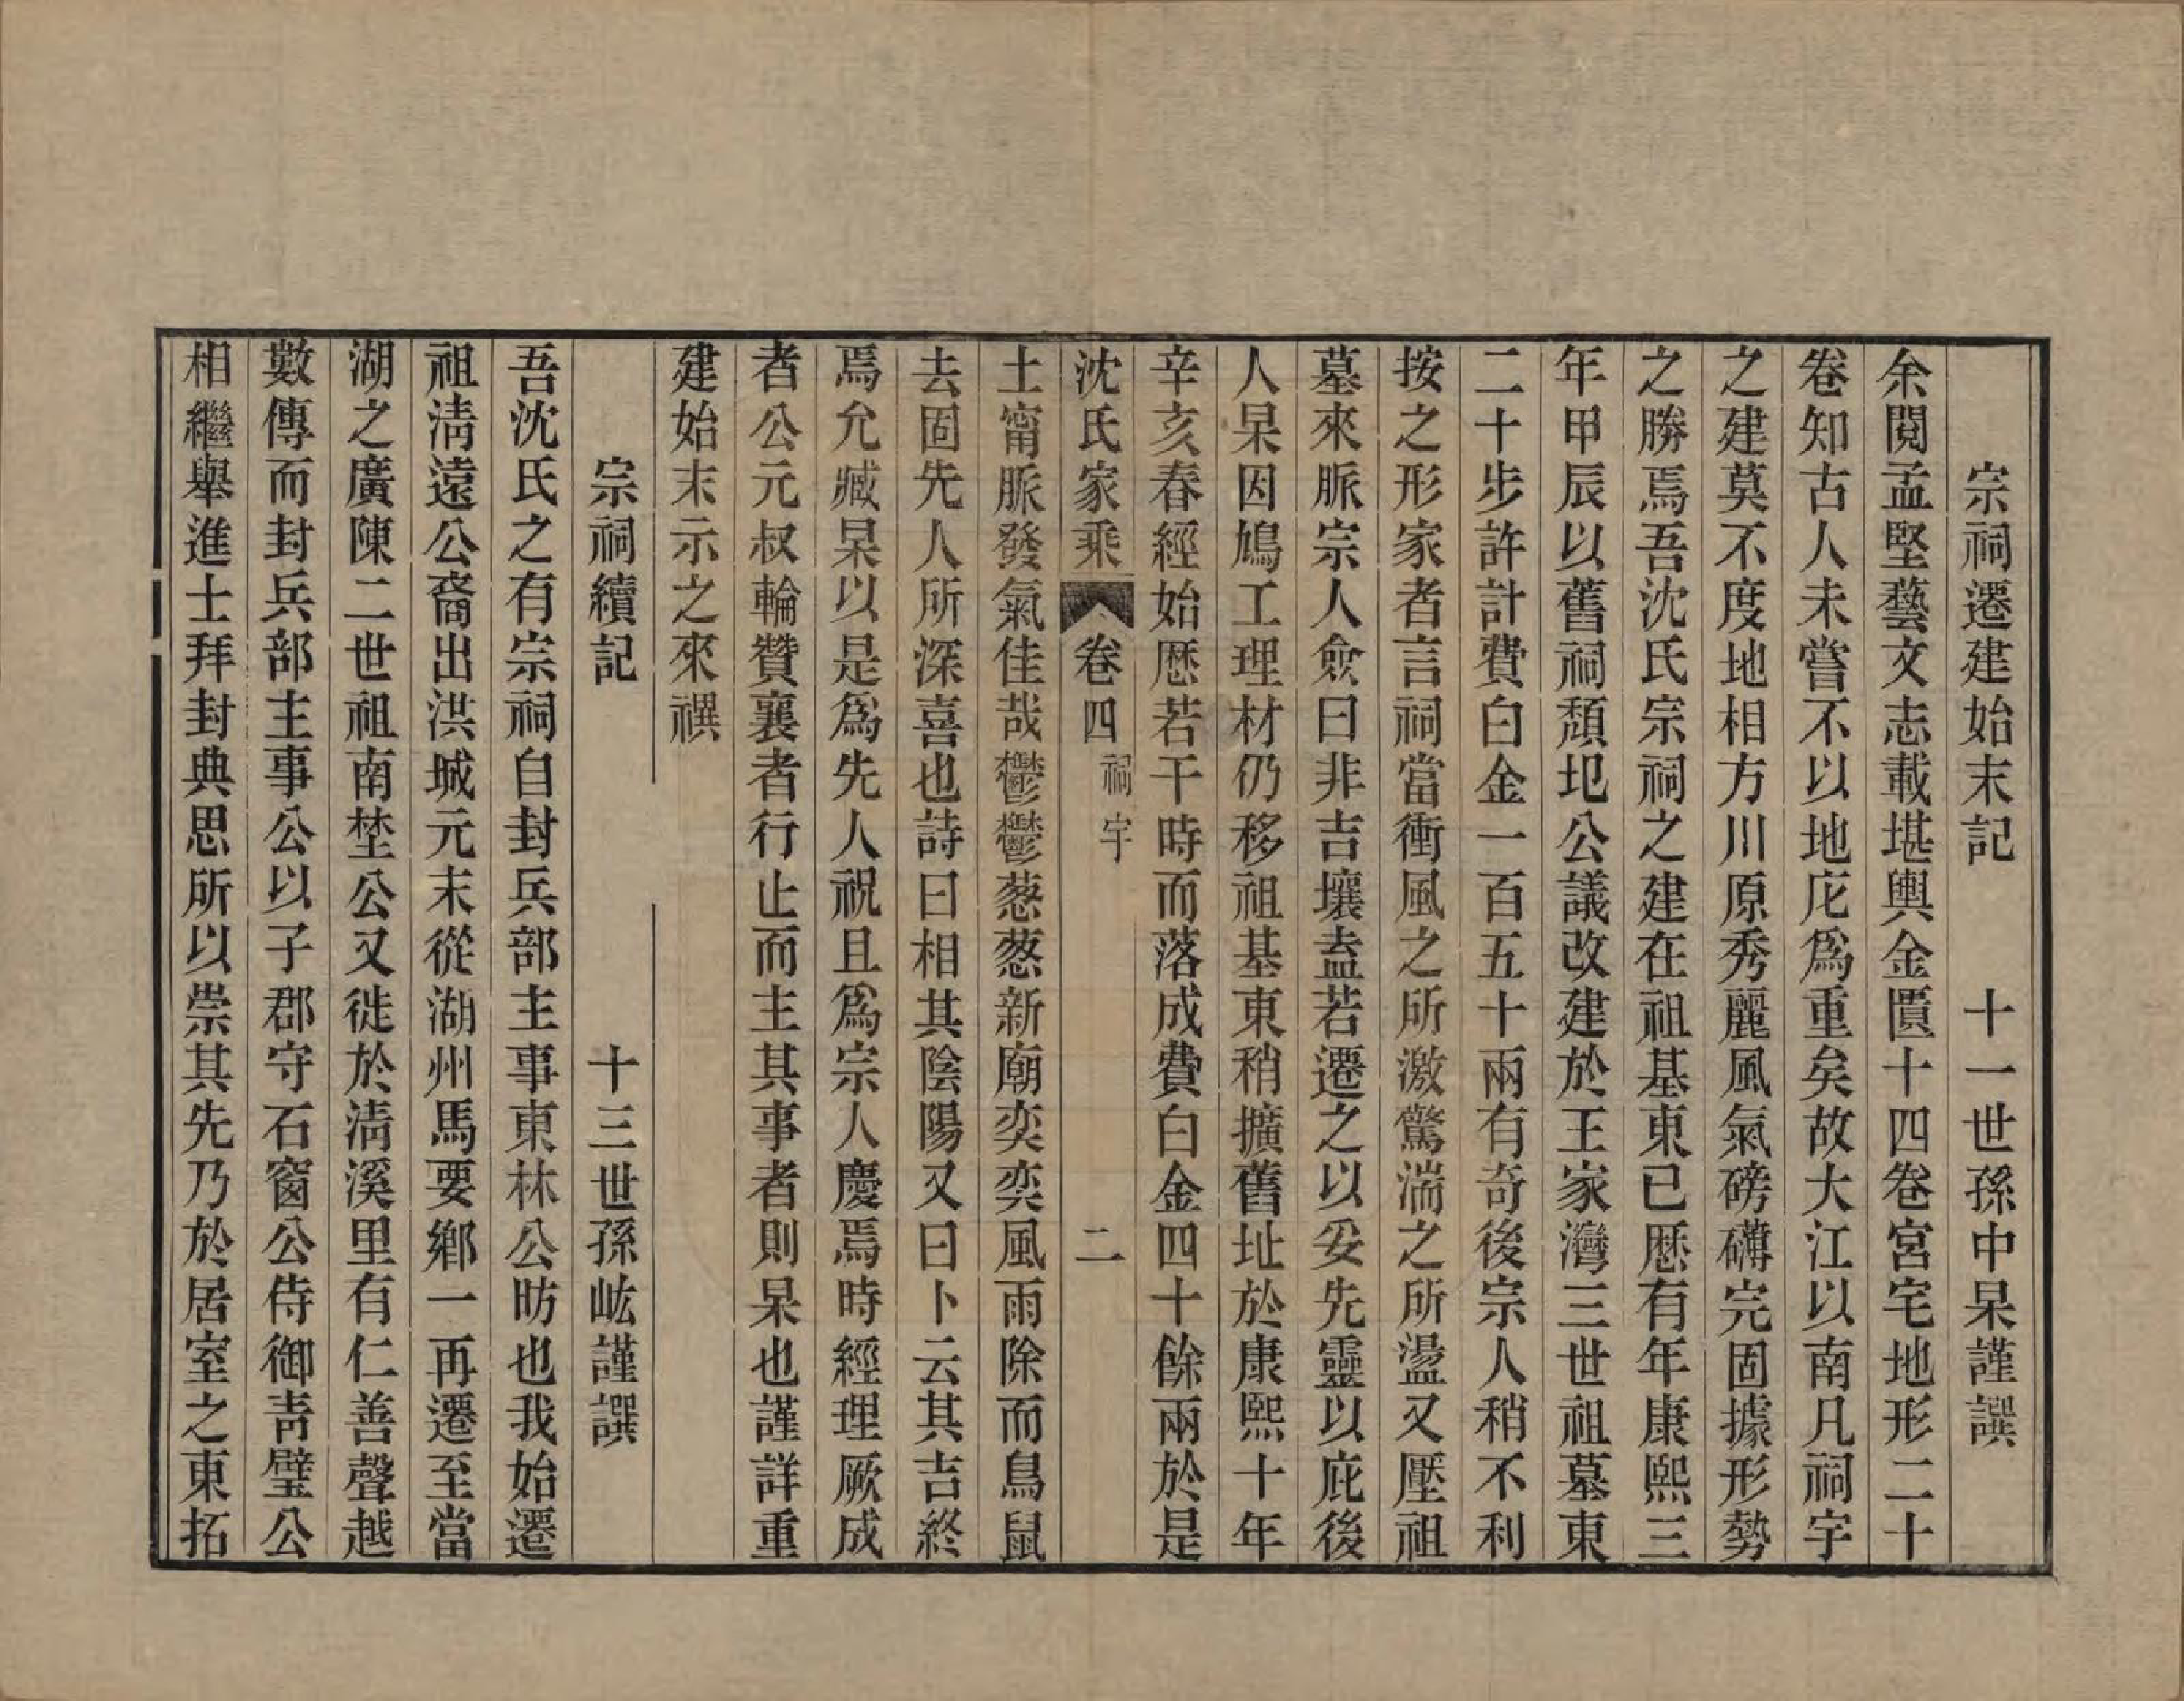 宗祠遷建始末記　十一世孫中杲謹譔
余閱孟堅藝文志載堪輿金匱十四卷宮宅地形二十
卷知古人未嘗不以地庀爲重矣故大江以南凡祠宇
之建莫不度地相方川原秀麗風氣磅礴完固據形勢
之勝焉吾沈氏宗祠之建在祖基東已歷有年康熙三
年甲辰以舊祠頹圮公議改建於王家灣三世祖墓東
二十步許計費白金一百五十兩有奇後宗人稍不利
按之形家者言祠當衝風之所激驚湍之所盪又壓祖
墓來脈宗人僉曰非吉壤盍若遷之以妥先靈以庇後
人杲因鳩工理材仍移祖基東稍擴舊址於康熙十年
辛亥春經始歷若干時而落成費白金四十餘兩於是
沈氏家乘　卷四　祠宇　二
土甯脈發氣佳哉鬱鬱葱葱新廟奕奕風雨除而鳥鼠
去固先人所深喜也詩曰相其陰陽又曰卜云其吉終
焉允臧杲以是爲先人祝且爲宗人慶焉時經理厥成
者公元叔輪贊襄者行止而主其事者則杲也謹詳重
建始末示之來禩
宗祠續記　十三世孫峵謹譔
吾沈氏之有宗祠自封兵部主事東林公昉也我始遷
祖淸遠公裔出洪城元末從湖州馬要鄉一再遷至當
湖之廣陳二世祖南埜公又徙於淸溪里有仁善聲越
數傳而封兵部主事公以子郡守石窗公侍御靑壁公
相繼舉進士拜封典思所以崇其先乃於居室之東拓